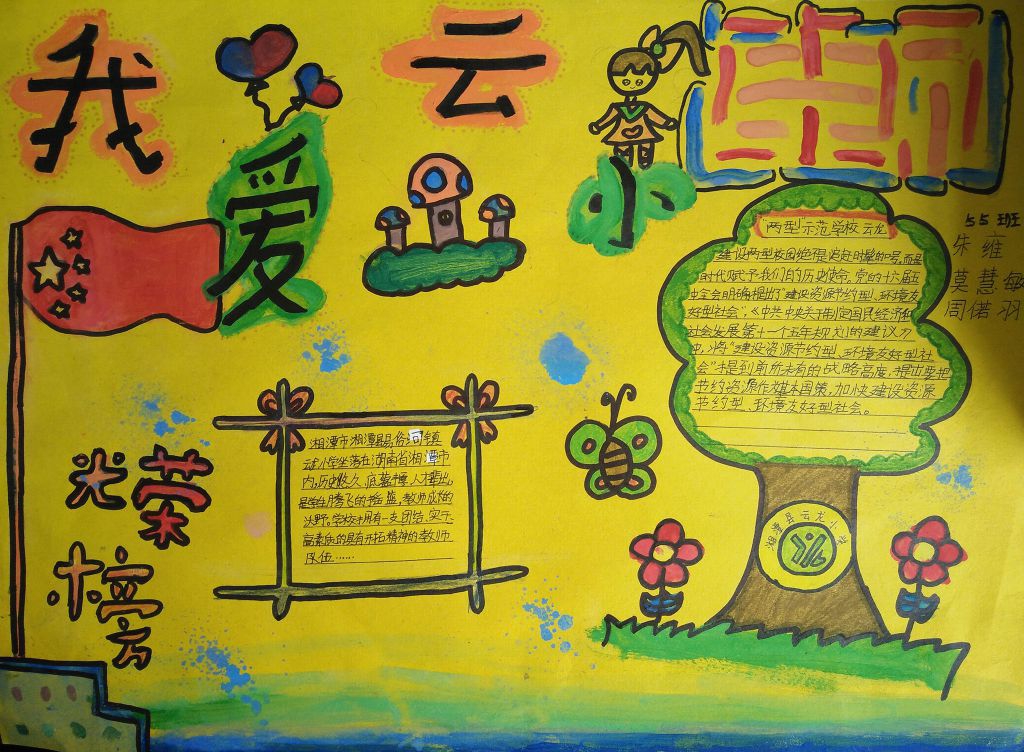 我
爱
云
小
光荣
榜
"两型"示范学校云龙
建设两型校园绝不是赶时髦的口号,而是
时代赋予我们的历史使命。党的十六届五
中全会明确提出了"建设资源节约型、环境友
好型社会",《中共中央关于制定国民经济和
社会发展第十一个五年规划的建议》
中,将"建设资源节约型、环境友好型社
会"提到前所未有的战略高度,提出要把
节约资源作为基本国策,加快建设资源
节约型、环境友好型社会。
55班
朱维
莫慧敏
周偌羽
湘潭市湘潭县易俗河镇
云龙小学坐落在湖南省湘潭市
内,历史悠久,底蕴丰厚,人才辈出,
是学生腾飞的摇篮,教师成才的
沃野。学校拥有一支团结、实干、
高素质的具有开拓精神的教师
队伍……
湘潭县云龙小学